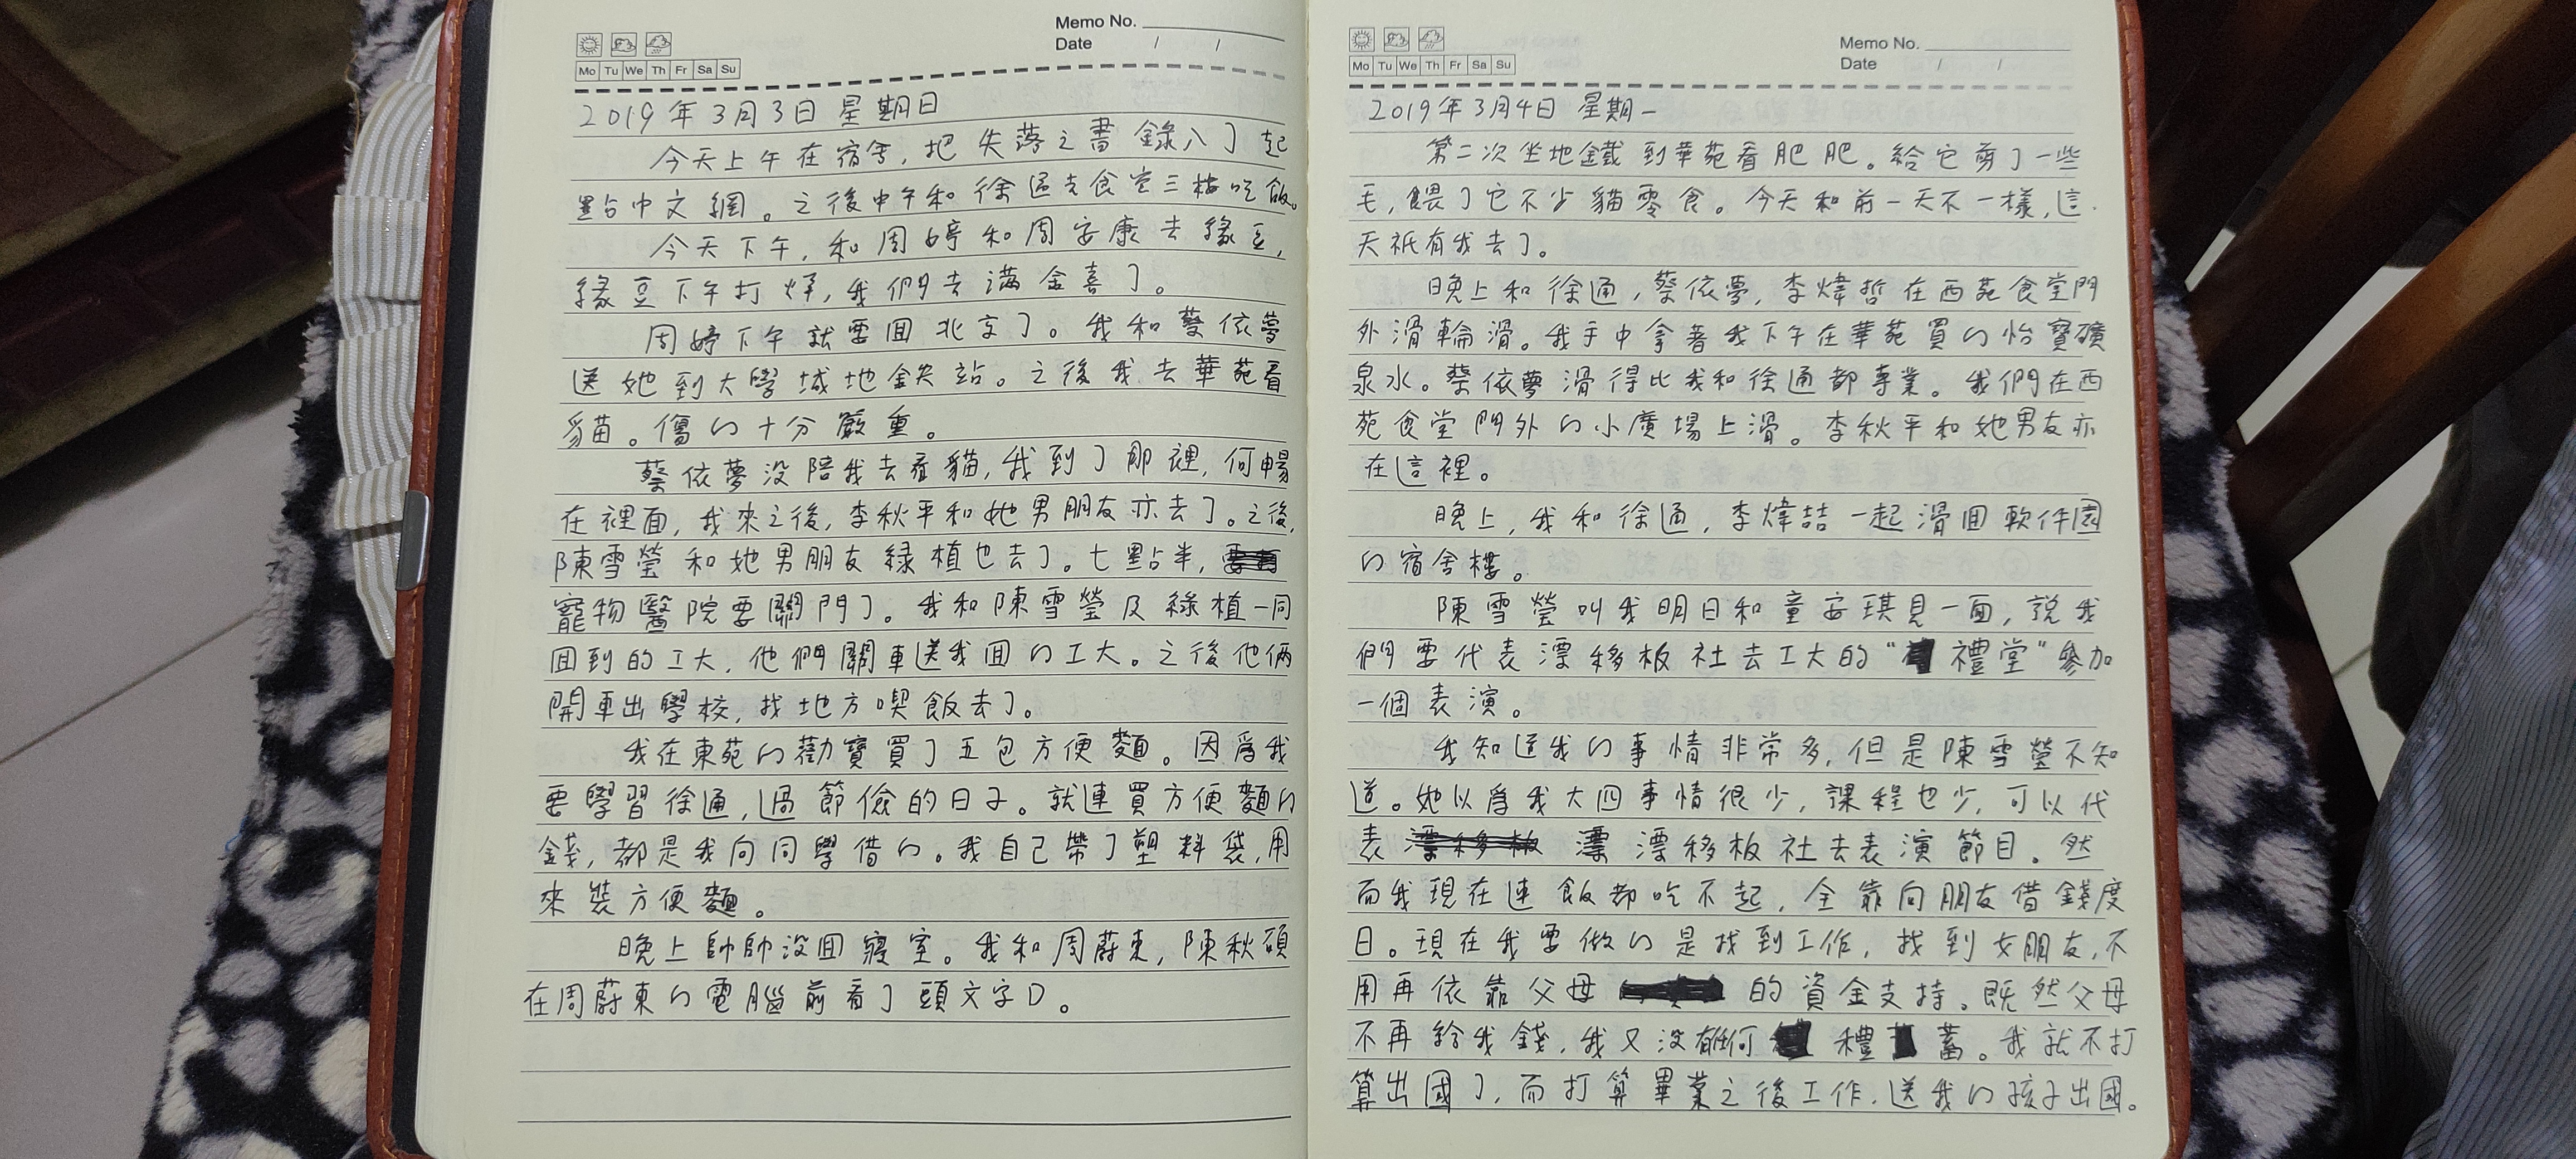 Memo No.
Date / /
Mo Tu We Th Fr Sa Su
2019年3月3日 星期日
今天上午在宿舍,把失落之書錄入了起
點中文網。之後中午和徐通去食堂三樓吃飯。
今天下午,和周婷和周安康去緣豆,
緣豆下午打烊,我們去滿金喜了。
周婷下午就要囬北京了。我和蔡依夢
送她到大學城地鉄站。之後我去華苑看
貓。傷的十分嚴重。
蔡依夢没陪我去看貓,我到了那裡,何暢
在裡面,我來之後,李秋平和她男朋友亦去了。之後,
陳雪瑩和她男朋友緑植也去了。七點半,
寵物醫院要關門了。我和陳雪瑩及綠植一同
囬到的工大,他們開車送我囬的工大。之後他俩
開車出學校,找地方喫飯去了。
我在東苑的勸寶買了五包方便麵。因爲我
要學習徐通,過節儉的日子。就連買方便麵的
錢,都是我向同學借的。我自己帶了塑料袋,用
來裝方便麵。
晚上帥帥没囬寢室。我和周蔚東,陳秋碩
在周蔚東的電腦前看了頭文字D。
Memo No.
Date / /
Mo Tu We Th Fr Sa Su
2019年3月4日 星期一
第二次坐地鐵到華苑看肥肥。給它剪了一些
毛,餵了它不少貓零食。今天和前一天不一樣,這
天祇有我去了。
晚上和徐通,蔡依夢,李煒喆在西苑食堂門
外滑輪滑。我手中拿著我下午在華苑買的怡寶礦
泉水。蔡依夢滑得比我和徐通都專業。我們在西
苑食堂門外的小廣場上滑。李秋平和她男友亦
在這裡。
晚上,我和徐通,李煒喆一起滑囬軟件園
的宿舍樓。
陳雪瑩叫我明日和童安琪見一面,說我
們要代表漂移板社去工大的“禮堂”參加
一個表演。
我知道我的事情非常多,但是陳雪瑩不知
道。她以爲我大四事情很少,課程也少,可以代
表漂移板 漂 漂移板社去表演節目。然
而我現在連飯都吃不起,全靠向朋友借錢度
日。現在我要做的是找到工作,找到女朋友,不
用再依靠父母的資金支持。既然父母
不再給我錢,我又没有任何 禮 蓄。我就不打
算出國了,而打算畢業之後工作,送我的孩子出國。